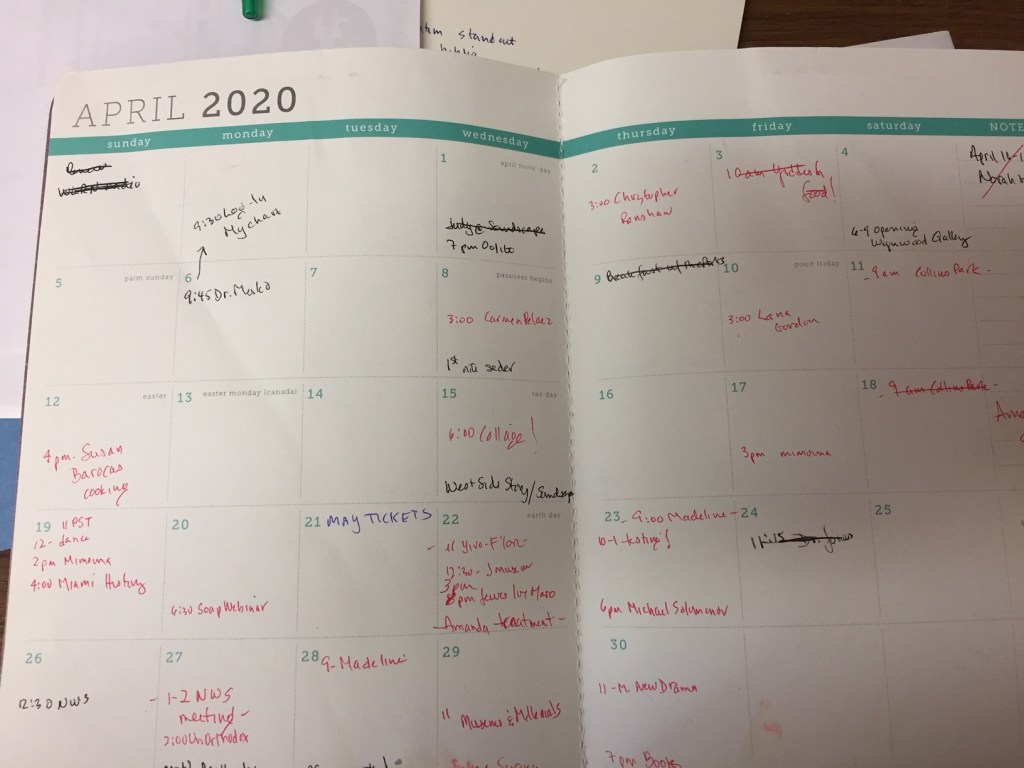 standout
APRIL 2020
sunday
monday
tuesday
wednesday
thursday
friday
saturday
NOTE
9:30 Log In
Mychart
1
april fools' day
7 pm Oolite
2
3:00 Christopher
Renshaw
3
food!
4
6-9 opening
Wynwood Gallery
April 12-1
Norah
5
palm sunday
6
9:45 Dr. Mako
7
8
passover begins
3:00 Carmen Pelaez
1st nite seder
9
Breakfast w/
10
good friday
3:00 Lana
Gordon
11
9 am Collins Park -
12
easter
4pm - Susan
Barocas
cooking
13
easter monday (canada)
14
15
tax day
6:00 Collage!
West Side Story/
16
17
3pm mimouna
18
9 am Collins Park -
19 11 PST
12 - dance
2pm Mimouna
4:00 Miami History
20
6:30 Soap Webinar
21 MAY TICKETS
22
earth day
- 11 Yivo -
12:30 - J museum
3pm
8pm Jews
- Amanda treatment -
23 - 9:00 Madeline -
10-1
6pm Michael Solomonov
24
11:15 Dr. Jones
25
26
12:30 NWS
27
- 1-2 NWS
meeting -
2:00 UnOrthodox
28 9 - Madeline
29
11 Museums & Millenials
30
11 - M. New Drama
7 pm Books